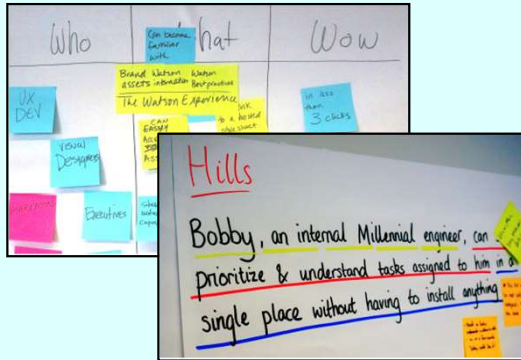 Who
What
Wow
Can become
familiar
with
Brand Watson Watson
assets information Best practices
The Watson Experience
UX
DEV
Visual
Designers
Executives
CAN
EASILY
link
to a hosted
in less
than
3 clicks
Hills
Bobby, an internal Millennial engineer, can
prioritize & understand tasks assigned to him in a
single place without having to install anything